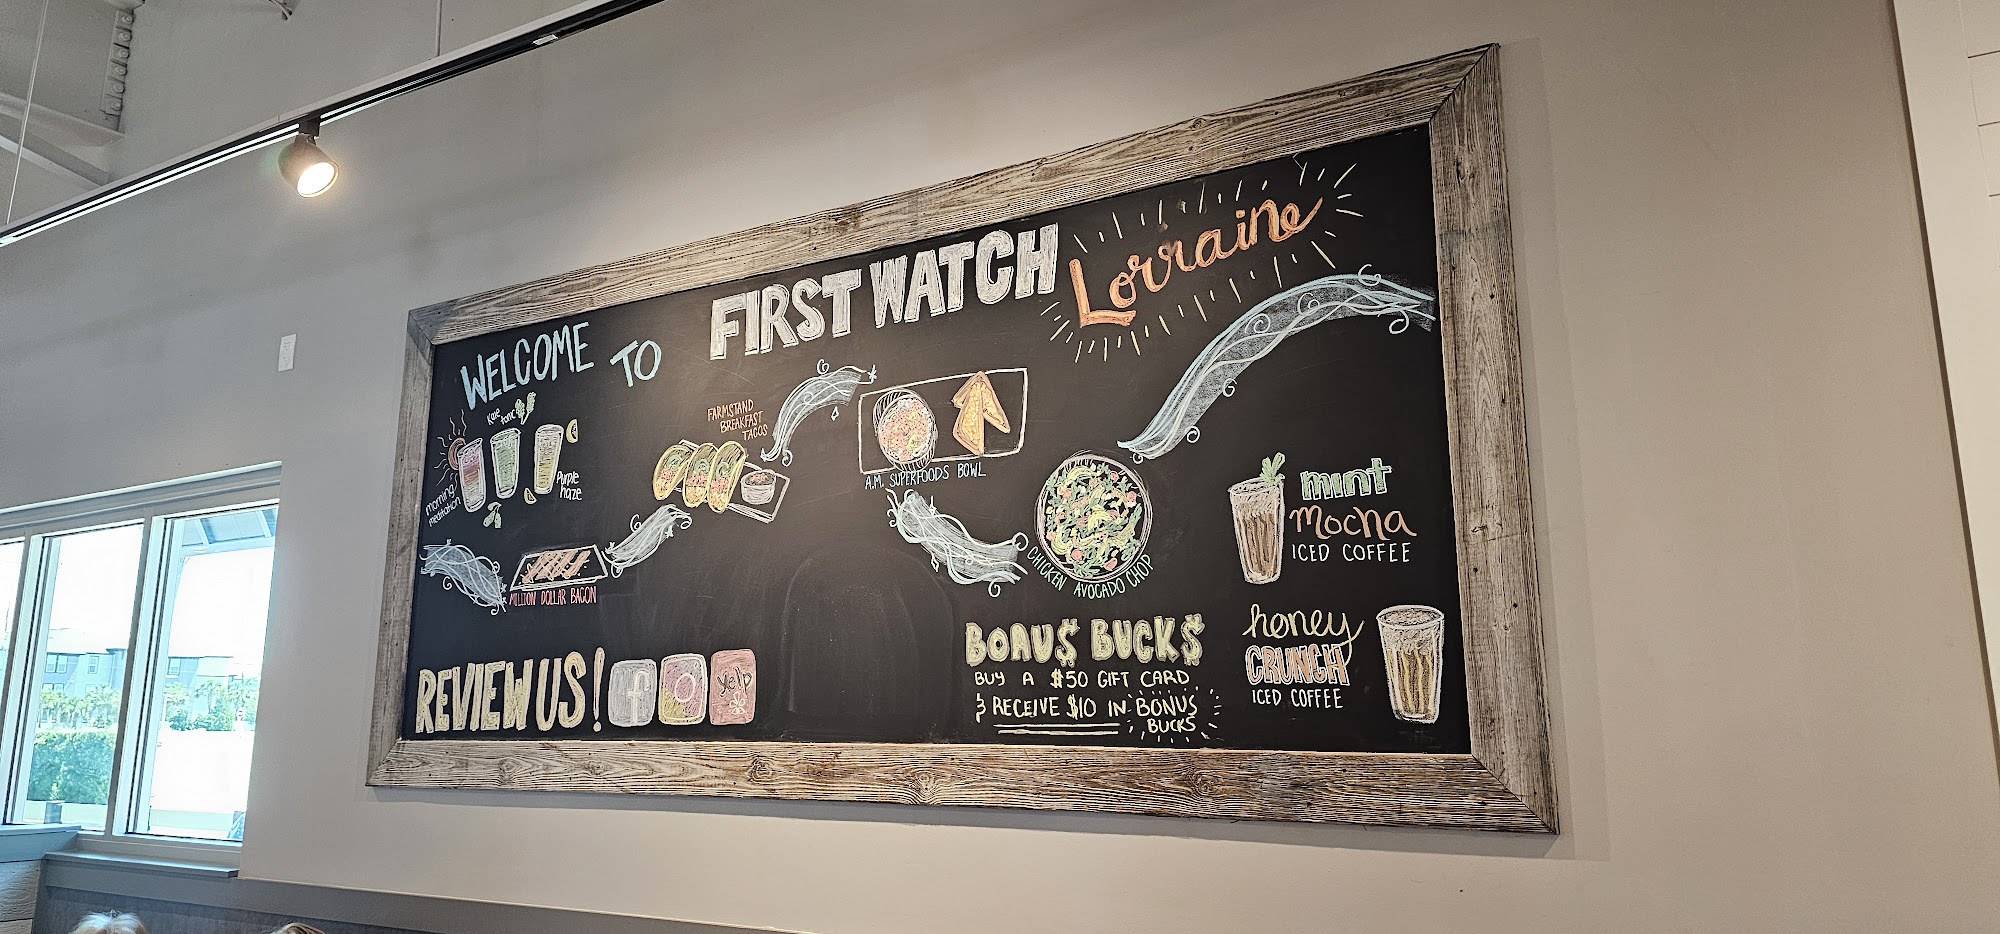 WELCOME TO
FIRST WATCH
Lorraine
Kale
tonic
morning
meditation
Purple
haze
MILLION DOLLAR BACON
FARMSTAND
BREAKFAST
TACOS
A.M. SUPERFOODS BOWL
CHICKEN AVOCADO CHOP
mint
Mocha
ICED COFFEE
honey
CRUNCH
ICED COFFEE
BONU$ BUCK$
BUY A $50 GIFT CARD
& RECEIVE $10 IN BONUS
BUCKS
REVIEW US!
f
yelp